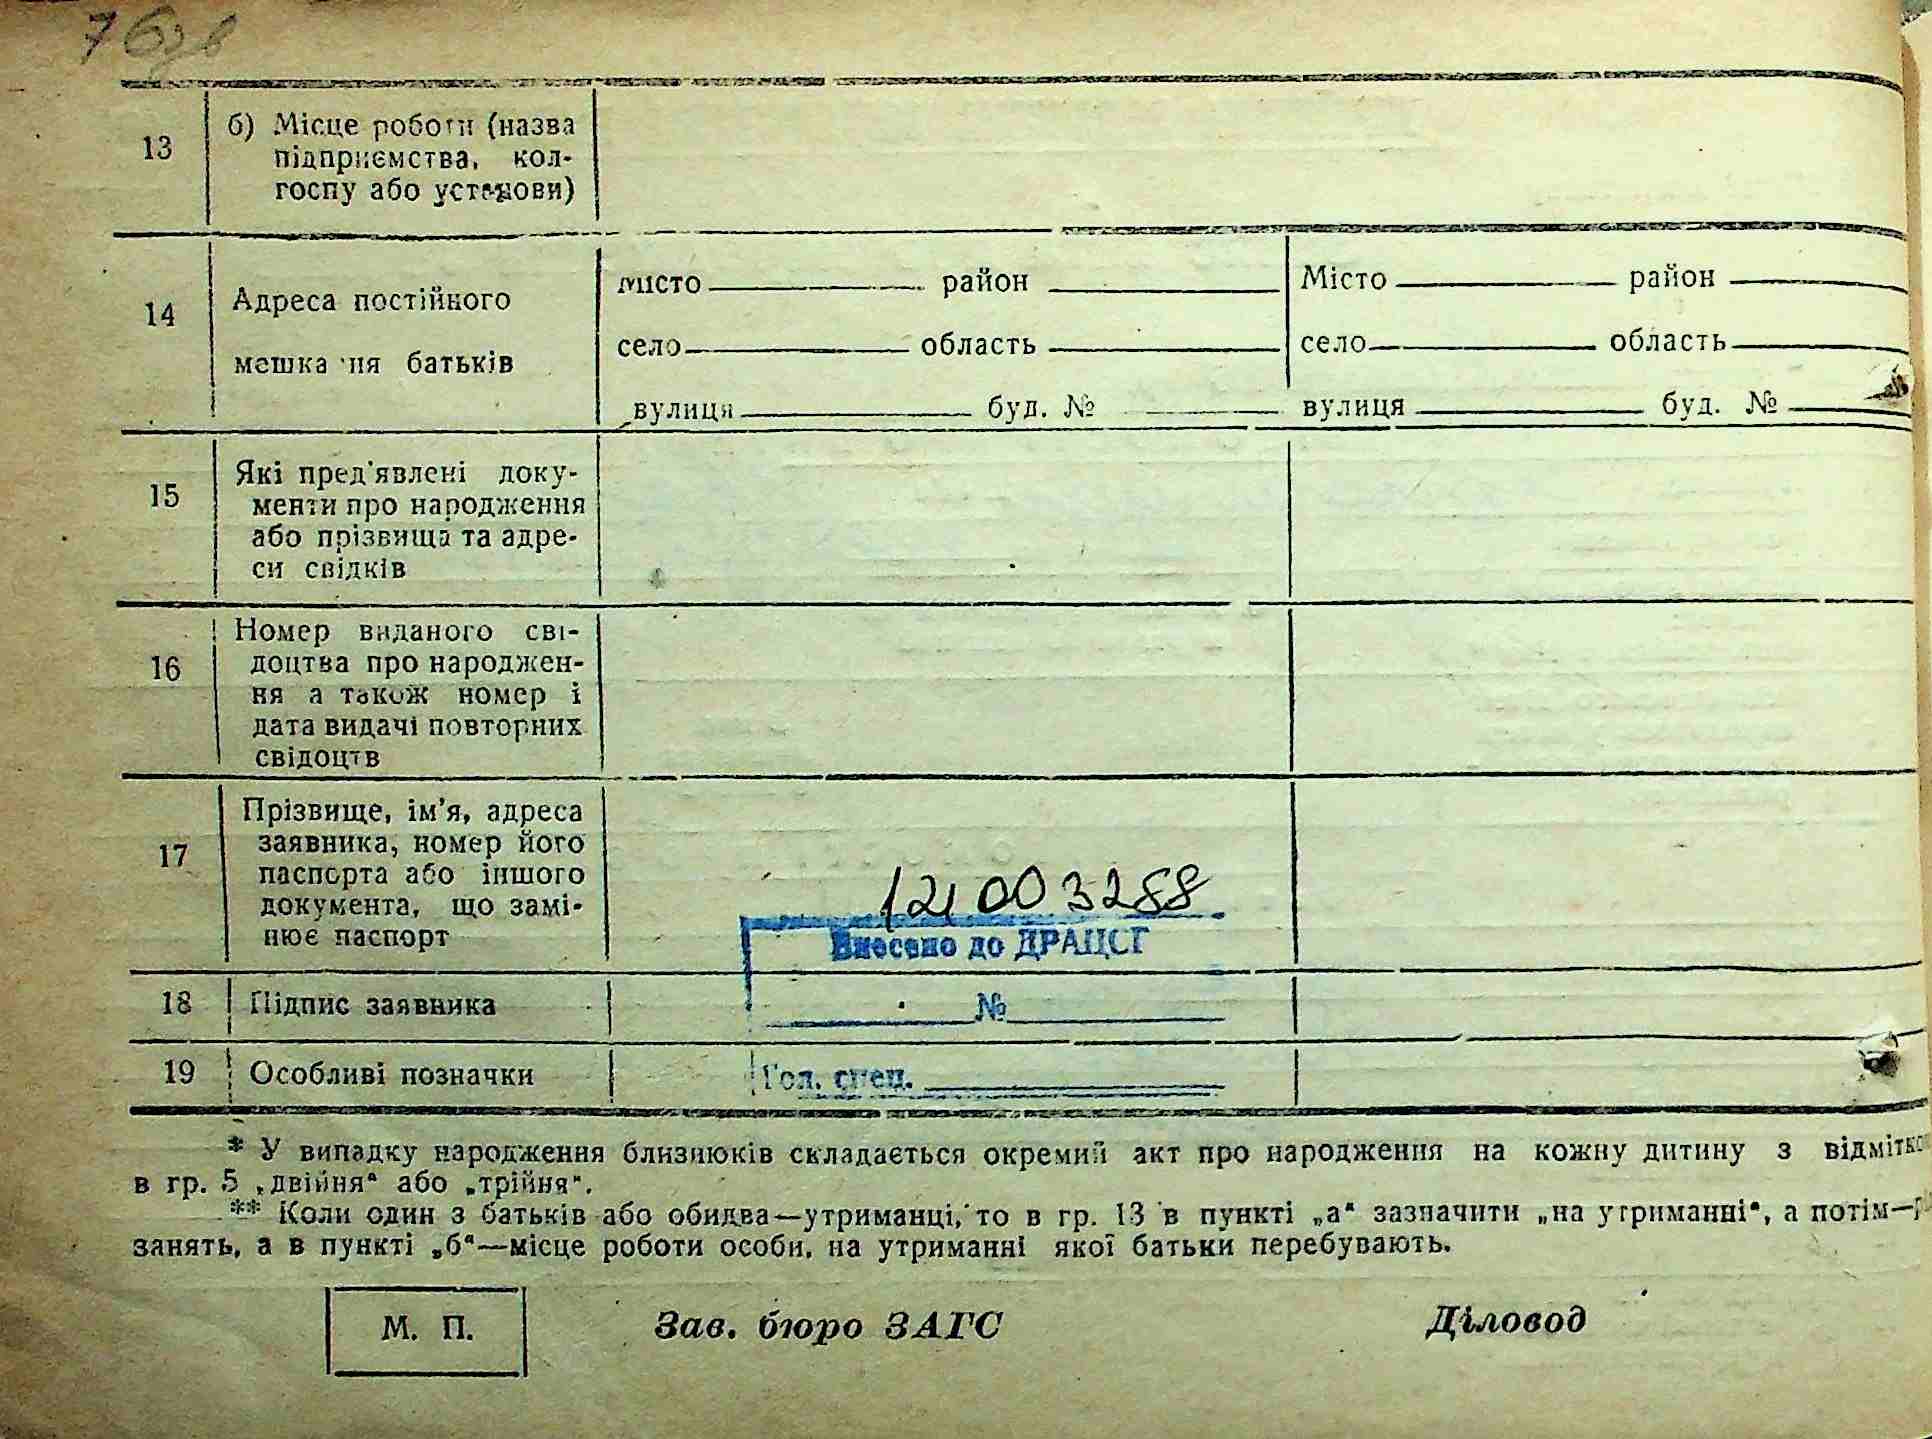 7 бзв
13
б) Місце роботи (назва
підприємства, кол-
госпу або установи)
14
Адреса постійного
мешкання батьків
місто район
село область
вулиця буд. №
Місто район
село область
вулиця буд. №
15
Які пред'явлені доку-
менти про народження
або прізвища та адре-
си свідків
16
Номер виданого сві-
доцтва про народжен-
ня а також номер і
дата видачі повторних
свідоцтв
17
Прізвище, ім'я, адреса
заявника, номер його
паспорта або іншого
документа, що замі-
нює паспорт
121003288
Внесено до ДРАЦСГ
18
Підпис заявника
№
19
Особливі позначки
Гол. спец.
* У випадку народження близнюків складається окремий акт про народження на кожну дитину з відмітко
в гр. 5 „двійня“ або „трійня“.
** Коли один з батьків або обидва—утриманці, то в гр. 13 в пункті „а“ зазначити „на утриманні“, а потім—
занять, а в пункті „б“—місце роботи особи, на утриманні якої батьки перебувають.
М. П.
Зав. бюро ЗАГС
Діловод